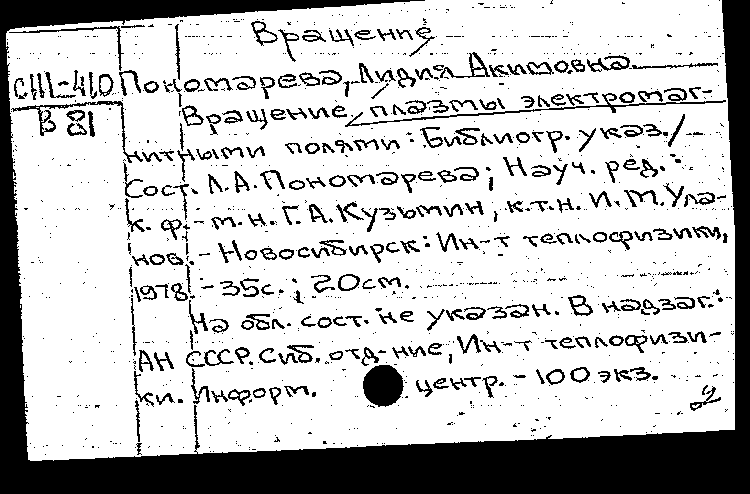 Вращение
СIII-410 Пономарева, Лидия Акимовна.
В 81 Вращение плазмы электромаг-
нитными полями: Библиогр. указ./
Сост. Л.А. Пономарева; Науч. ред.:
к.ф.-м.н. Г.А. Кузьмин, к.т.н. И.М. Ула-
нов. - Новосибирск: Ин-т теплофизики,
1978. - 35с.; 20см.
На обл. сост. не указан. В надзаг.:
АН СССР. Сиб. отд-ние, Ин-т теплофизи-
ки. Информ. центр. - 100 экз.